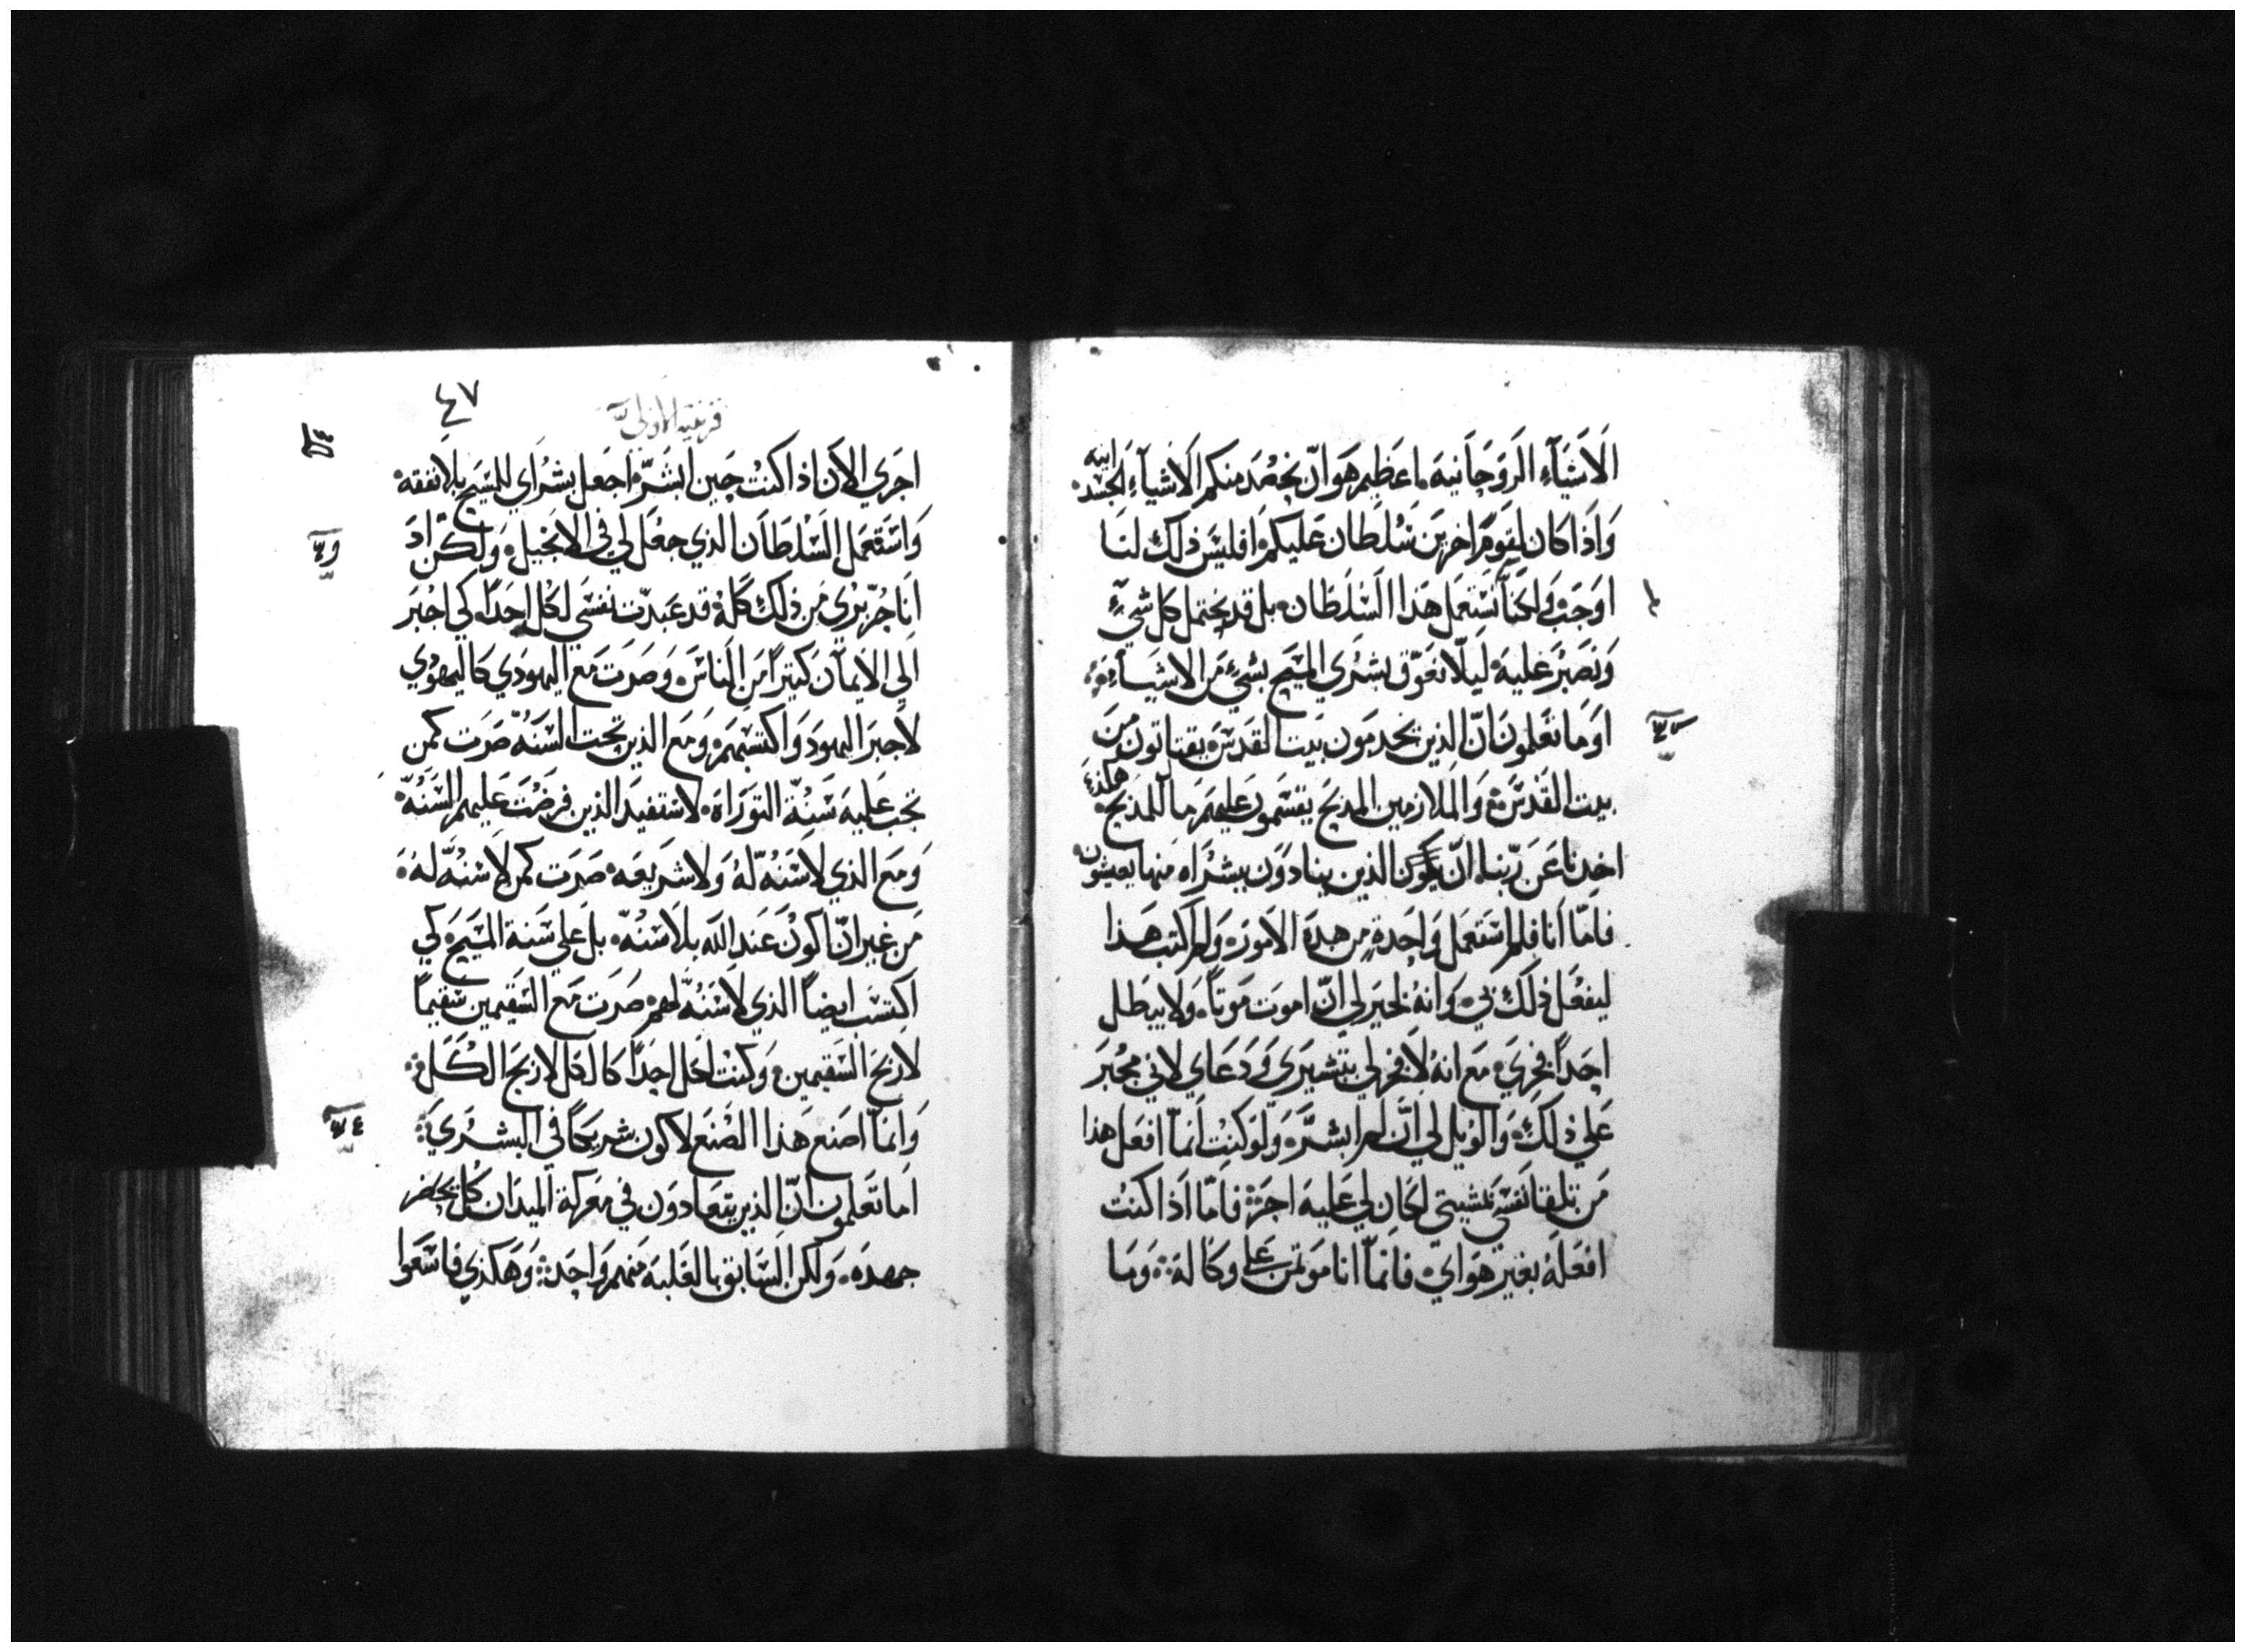 الاشياء الروحانية ما عظيم هو ان نحصد منكم الاشياء الجسدانيه
واذا كان لقوم اخرين سلطان عليكم افليس ذلك لنا
اوجب ولكنا نستعمل هذا السلطان بل قد نحتمل كل شيء
ونصبر عليه ليلا نعوق بشري المسيح بشيء من الاشياء
اوما تعلمون ان الذين يخدمون بيت القدس يقتاتون من
بيت القدس والملازمين المدبح يقسمون عليهم ما للمذبح هكذي
اخدنا عن ربنا ان يكون الذين ينادون ببشراه منها يعيشون
فاما انا فلم استعمل واحدة من هده الامور ولم اكتب هذا
ليفعل ذلك بي وانه لخير لي ان اموت موتا ولا يبطل
احدا فخري مع انه لا فخر لي بتبشيري ودعاي لاني مجبر
علي ذلك والويل لي ان لم ابشر ولو كنت انما افعل هذا
من تلقا نفسي بمشيتي لكان لي عليه اجر فاما اذا كنت
افعله بغير هواي فانما انا موتمن علي وكاله وما
٤٧
اجري الان اذا كنت حين ابشر اجعل بشراي للمسيح بلا نفقه
واستعمل السلطان الذي جعل لي في الانجيل ولكن اد
انا حر بري من ذلك كله قد عبدت نفسي لكل احدا كي اجبر
الي الايمان كتيرا من الناس وصرت مع اليهودي كاليهودي
لاجبر اليهود واكتسبهم ومع الذين تحت السنه صرت كمن
تجب عليه سنة التوراه لاستفيد الذين فرضت عليهم السنه
ومع الذي لا سنه له ولا شريعه صرت كمن لا سنه له
من غير ان اكون عند الله بلا سنه بل علي سنة المسيح كي
اكتسب ايضا الذي لا سنه لهم صرت مع السقيمين سقيما
لاربح السقيمين وكنت لكل احدا كالكل لاربح الكل
وانما اصنع هذا الصنع لاكون شريكا في البشري
اما تعلمون ان الذين يتعادون في معركة الميدان كل يحضر
جهده ولكن السابق بالغلبه منهم واحد وهكذي فاسعوا